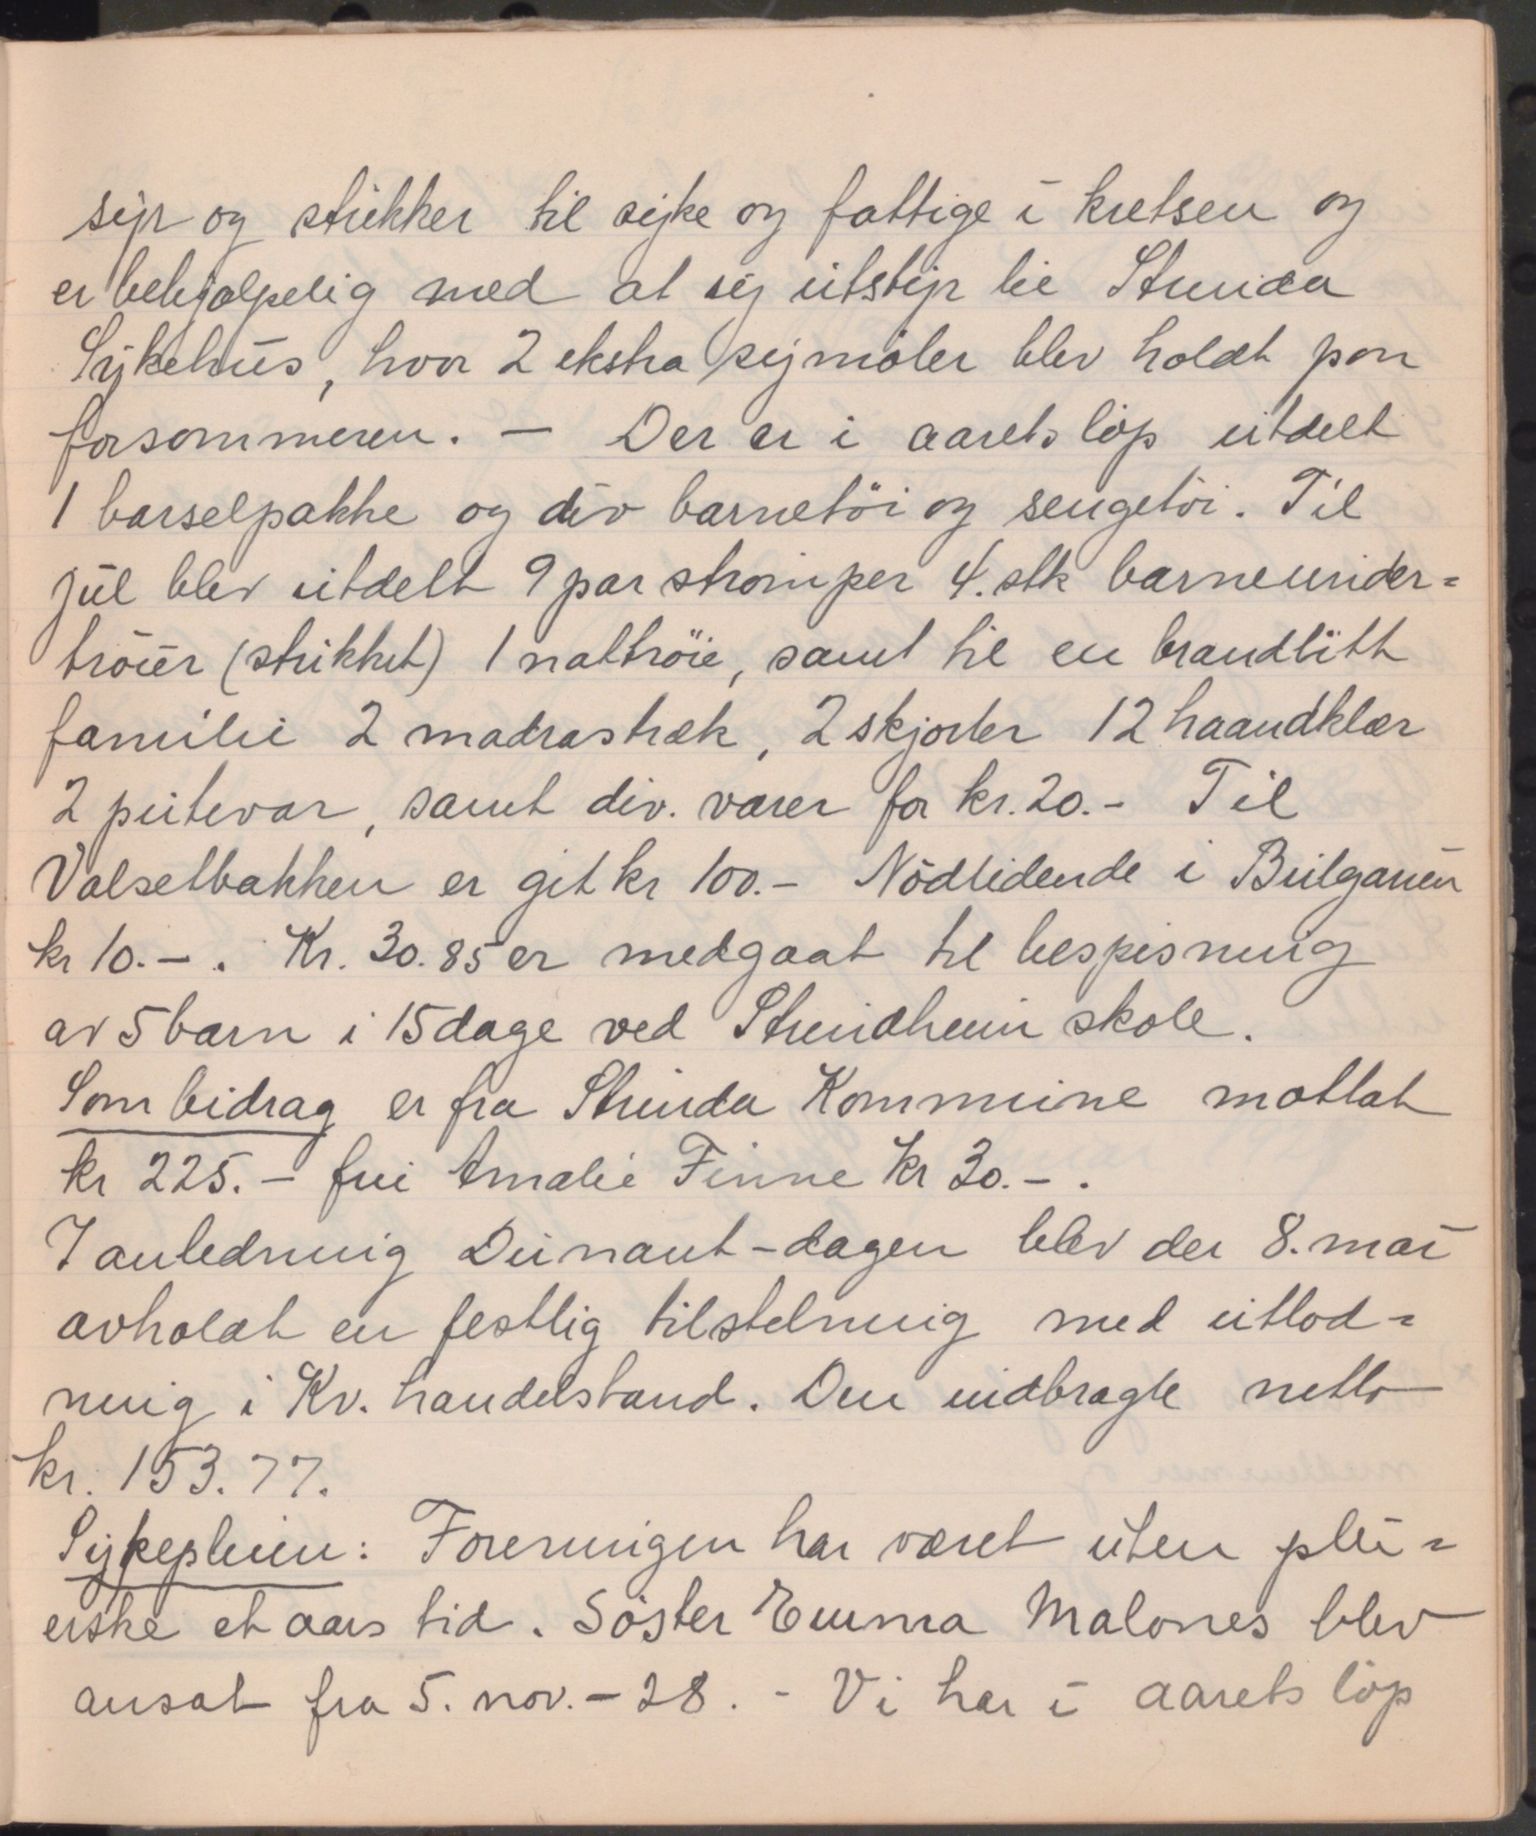 syr og strikker til syke og fattige i kretsen og
er behjælpelig med at sy utstyr til Strinda
Sykehus, hvor 2 ekstra symöter blev holdt paa
forsommeren. — Der er i aarets löp utdelt
1 barselpakke og div barnetöi og sengetöi. Til
jul blev utdelt 9 par strömper 4. stk barneunder=
tröier (strikket) 1 nattröie, samt til en brandlitt
familie 2 madrastræk, 2 skjorter 12 haandklær
2 putevar, samt div. varer for kr. 20.- Til
Valsetbakken er git kr 100.- Nödlidende i Bulgarien
kr 10.- . Kr. 30.85 er medgaat til bespisning
av 5 barn i 15 dage ved Strindheim skole.
Som bidrag er fra Strinda Kommune mottat
kr 225.- fru Amalie Finne Kr 30.- .
I anledning Dunant-dagen blev der 8. mai
avholdt en festlig tilstelning med utlod=
ning i Kv. handelstand. Den indbragte netto
kr. 153.77.
Sykepleien: Foreningen har været uten plei=
erske et aars tid. Söster Emma Malones blev
ansat fra 5. nov. - 28. - Vi har i aarets löp